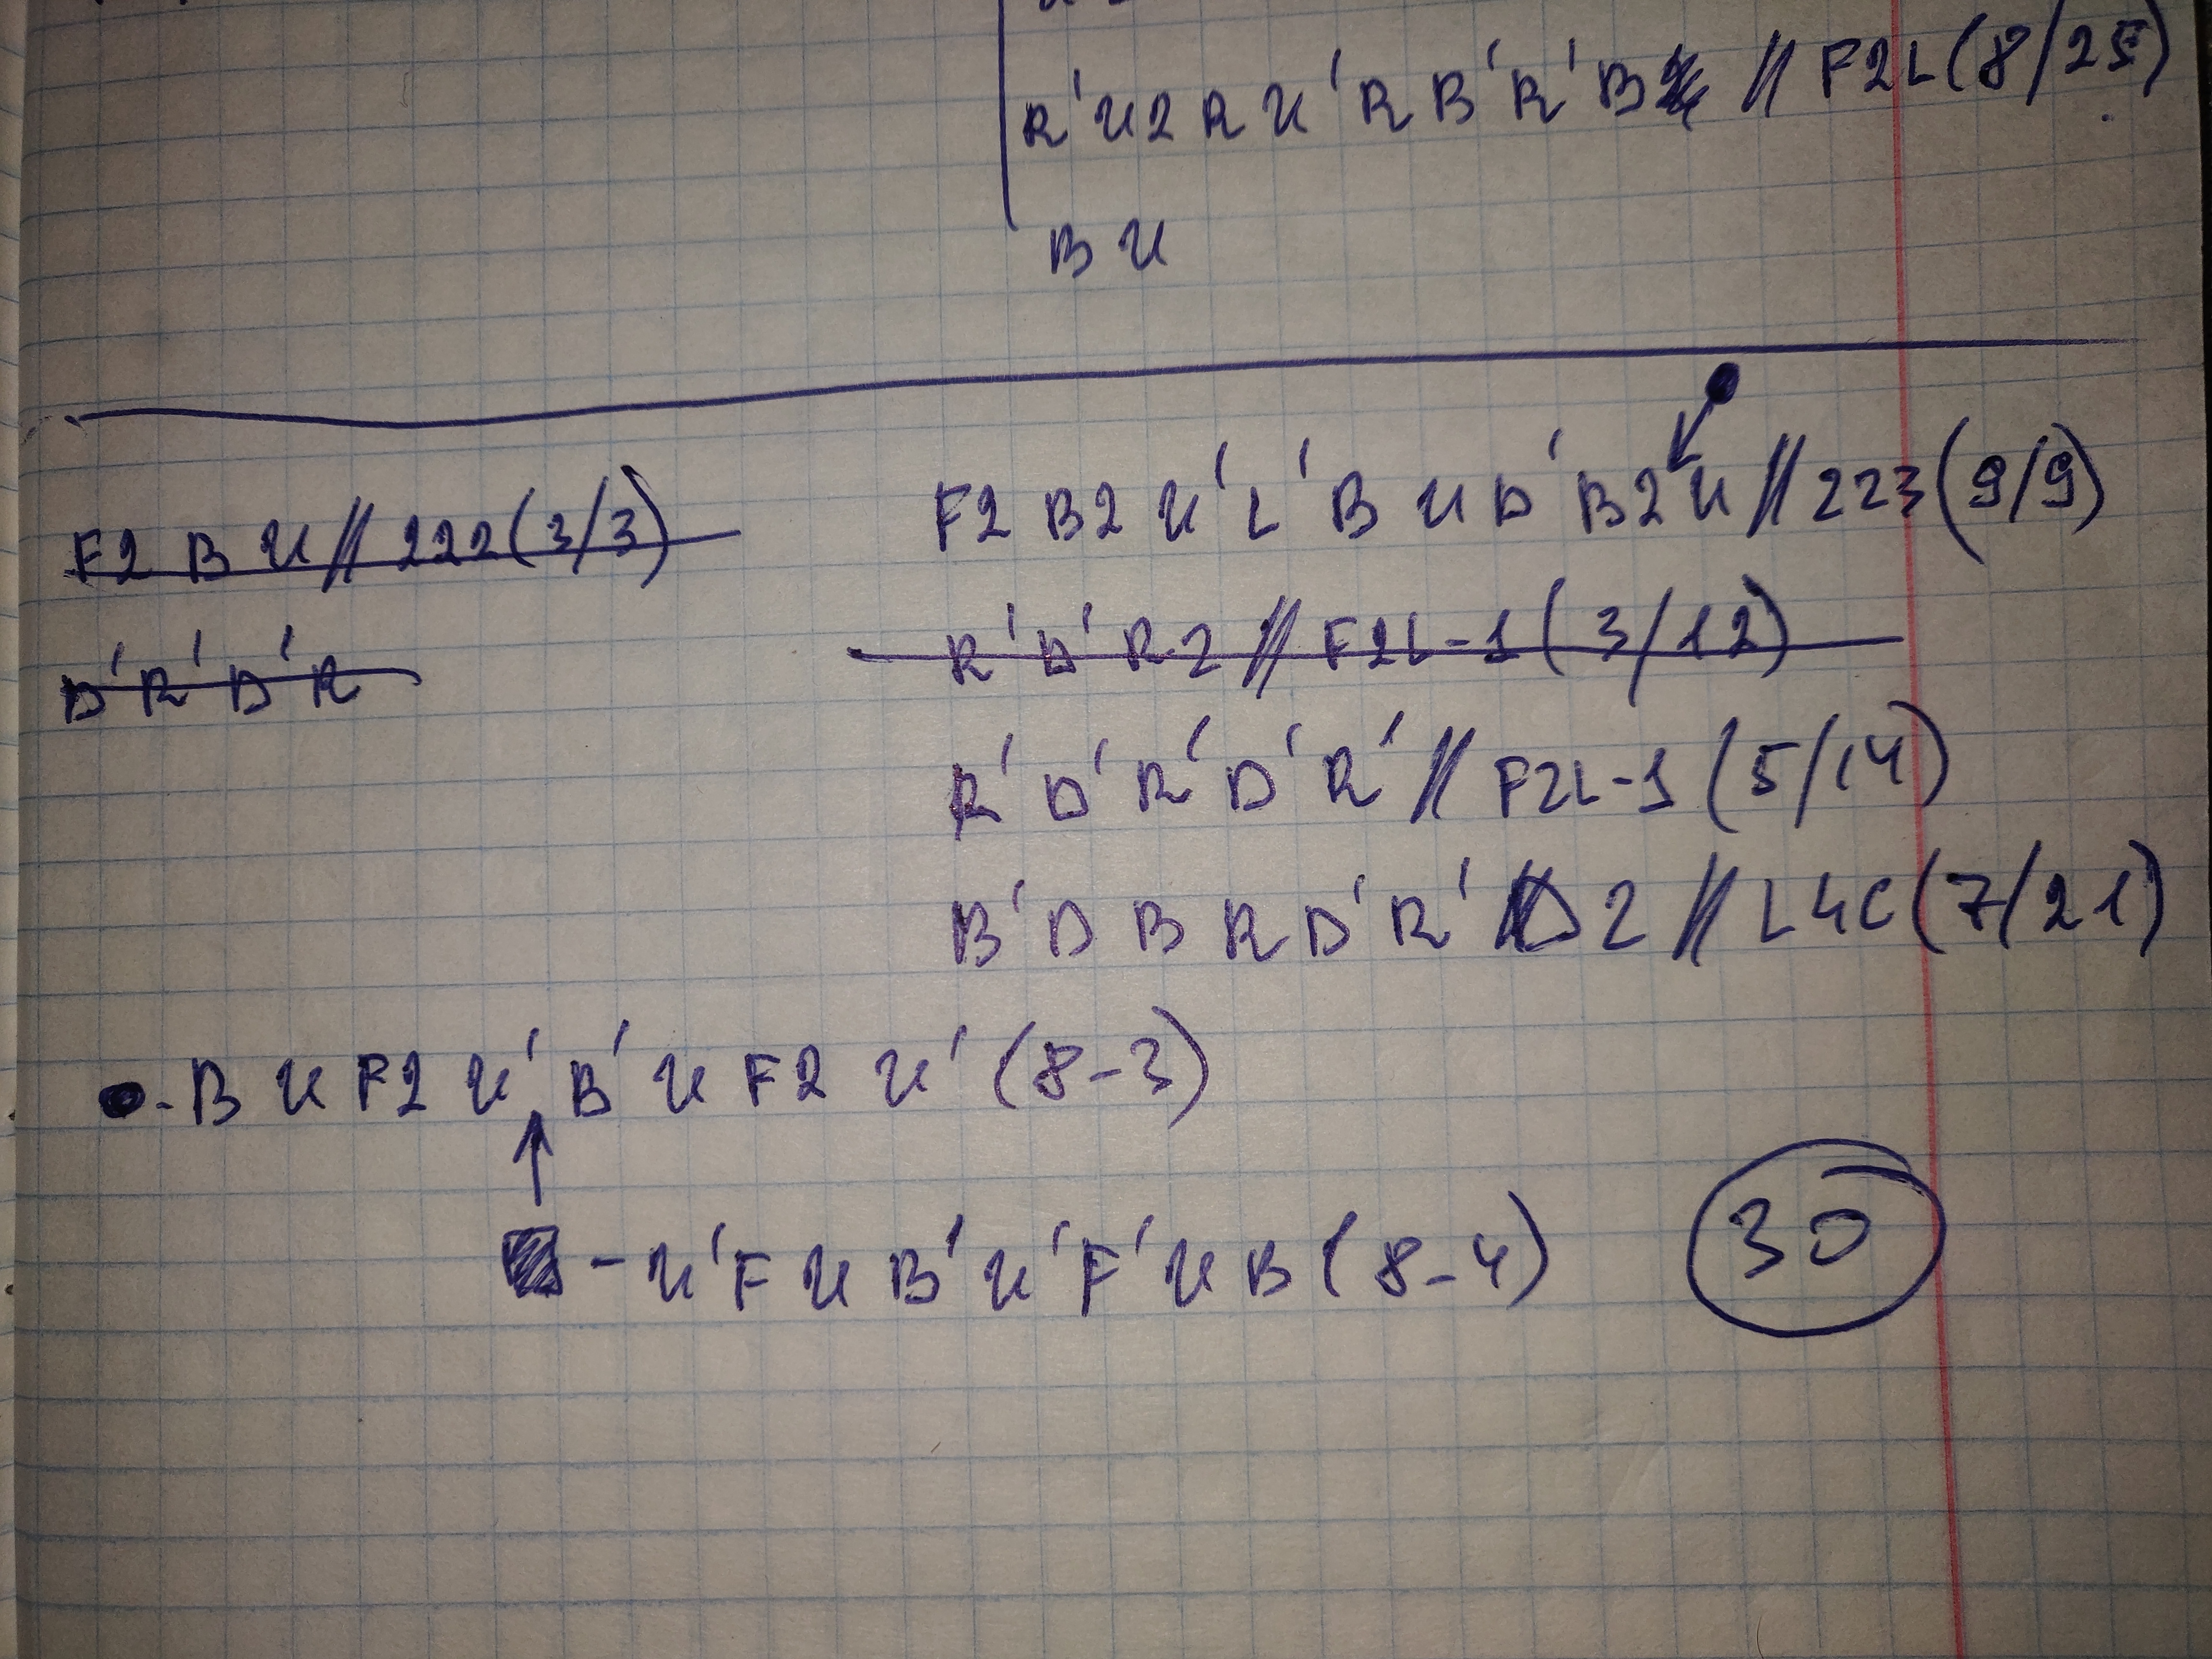 R'U2RU'RB'R'B // F2L(8/25)
B U
F2 B U // 222(3/3)
D'R'D'R
F2 B2 U'L'B U D'B2 U // 223(9/9)
R'D'R2 // F2L-1(3/12)
R'D'R'D'R' // F2L-1(5/14)
B'D B R D'R' D2 // L4C(7/21)
●-B U F2 U'B'U F2 U'(8-3)
↑
■-U'F U B'U'F'U B(8-4)
30